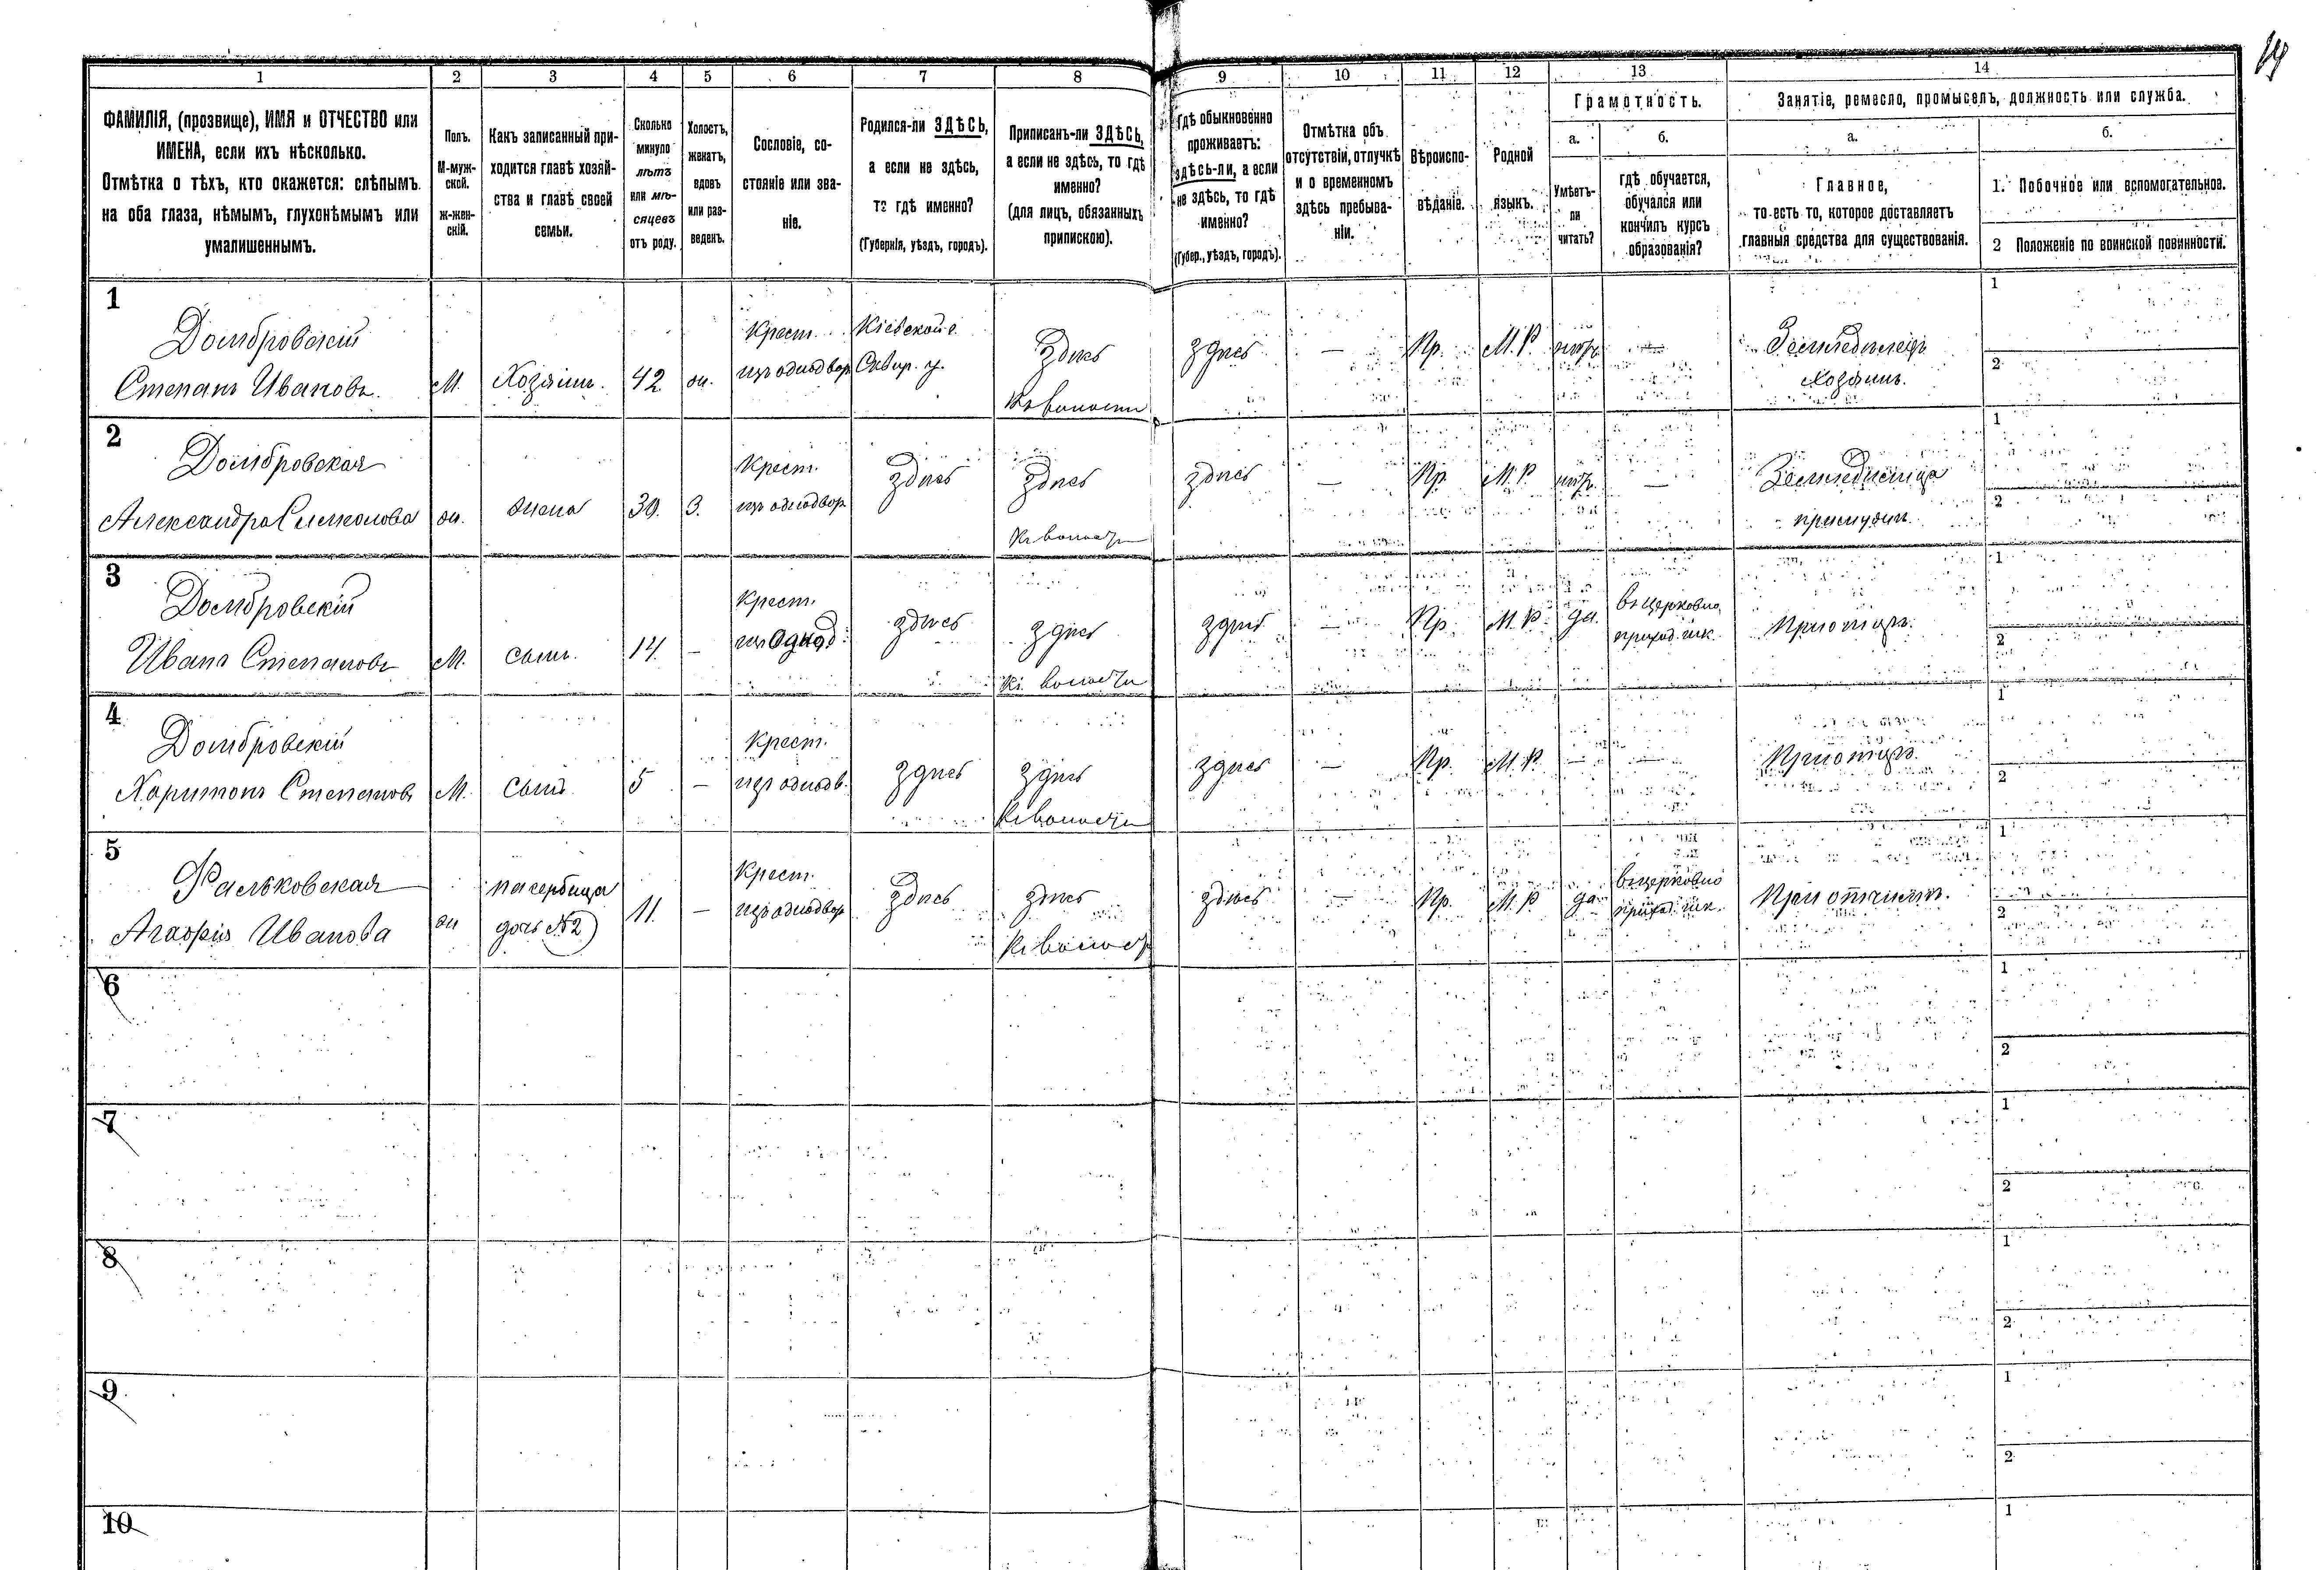 14
1 2 3 4 5 6 7 8 9 10 11 12 13 14
ФАМИЛІЯ, (прозвище), ИМЯ и ОТЧЕСТВО или
ИМЕНА, если ихъ нѣсколько.
Отмѣтка о тѣхъ, кто окажется: слѣпымъ
на оба глаза, нѣмымъ, глухонѣмымъ или
умалишеннымъ.
Полъ.
М-муж-
ской.
ж-жен-
скій.
Какъ записанный при-
ходится главѣ хозяй-
ства и главѣ своей
семьи.
Сколько
минуло
лѣтъ
или мѣ-
сяцевъ
отъ роду.
Холостъ,
женатъ,
вдовъ
или раз-
веденъ.
Сословіе, со-
стояніе или зва-
ніе.
Родился-ли ЗДѢСЬ,
а если не здѣсь,
то гдѣ именно?
(Губернія, уѣздъ, городъ).
Приписанъ-ли ЗДѢСЬ,
а если не здѣсь, то гдѣ
именно?
(для лицъ, обязанныхъ
припискою).
Гдѣ обыкновенно
проживаетъ:
здѣсь-ли, а если
не здѣсь, то гдѣ
именно?
(Губер., уѣздъ, городъ).
Отмѣтка объ
отсутствіи, отлучкѣ
и о временномъ
здѣсь пребыва-
ніи.
Вѣроиспо-
вѣданіе.
Родной
языкъ.
Грамотность.
а.
Умѣетъ-
ли
читать?
б.
гдѣ обучается,
обучался или
кончилъ курсъ
образованія?
Занятіе, ремесло, промыселъ, должность или служба.
а.
Главное,
то есть то, которое доставляетъ
главныя средства для существованія.
б.
1. Побочное или вспомогательное.
2 Положеніе по воинской повинности.
1
Домбровскій
Степанъ Ивановъ.
М. Хозяинъ. 42 ж.
Крест.
изъ однодвор.
Кіевской г.
Сквир. у.
здѣсь
къ волости
здѣсь — Пр. М.Р. —
Земледѣлецъ
хозяинъ.
1
2
2
Домбровская
Александра
ж. жена 30. З.
Крест.
изъ однодвор.
здѣсь
здѣсь
къ волости
здѣсь — Пр. М.Р. —
1
2
3
Домбровскій
Иванъ Степановъ
М. сынъ. 14 —
Крест.
изъ однод.
здѣсь
здѣсь
къ волости
здѣсь — Пр. М.Р. да.
въ церковно
приход. шк.
При отцѣ.
1
2
4
Домбровскій
Харитонъ Степановъ
М. сынъ 5 —
Крест.
изъ однодв.
здѣсь
здѣсь
къ волости
здѣсь — Пр. М.Р. — —
При отцѣ.
1
2
5
Фальковская
Агафія Иванова
ж
падчерица
дочь №2
11. —
Крест.
изъ однодвор
здѣсь
здѣсь
къ волост
здѣсь — Пр. М.Р. да
въ церковно
приход. шк.
При отчимѣ.
1
2
6
1
2
7
1
2
8
1
2
9
1
2
10
1